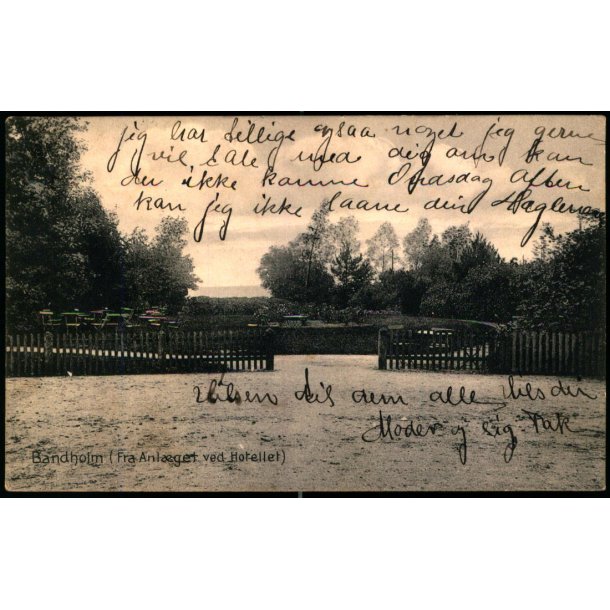 jeg har tillige ogsaa noget jeg gerne
vil tale med dig om kan
du ikke komme Onsdag aften
kan jeg ikke laane din
Hilsen til dem alle hils din
Moder og sig Tak
Bandholm (Fra Anlæget ved Hotellet)